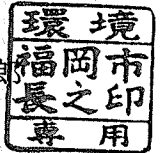 環境
福岡市
長之印
専用